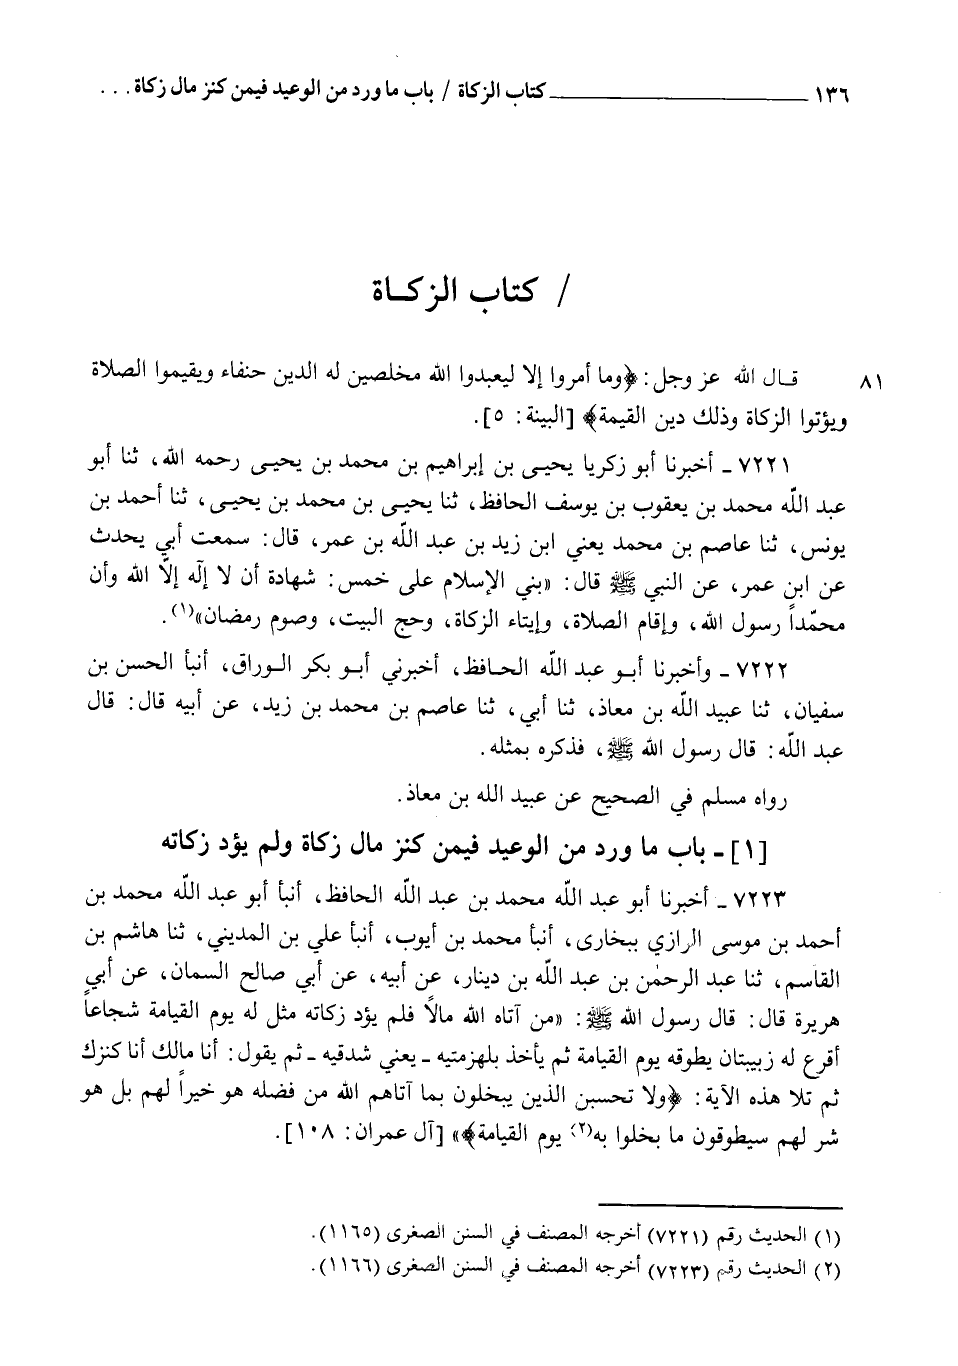 ١٣٦ ـــــــــــــ كتاب الزكاة / باب ما ورد من الوعيد فيمن كنز مال زكاة . . .
/ كتاب الزكــاة
٨١ قــال الله عز وجل: ﴿وما أمروا إلا ليعبدوا الله مخلصين له الدين حنفاء ويقيموا الصلاة
ويؤتوا الزكاة وذلك دين القيمة﴾ [البينة: ٥].
٧٢٢١ ـ أخبرنا أبو زكريا يحيى بن إبراهيم بن محمد بن يحيى رحمه الله، ثنا أبو
عبد اللّه محمد بن يعقوب بن يوسف الحافظ، ثنا يحيى بن محمد بن يحيى، ثنا أحمد بن
يونس، ثنا عاصم بن محمد يعني ابن زيد بن عبد اللّه بن عمر، قال: سمعت أبي يحدث
عن ابن عمر، عن النبي ﷺ قال: «بني الإسلام على خمس: شهادة أن لا إلٓه إلاّ الله وأن
محمّداً رسول الله، وإقام الصلاة، وإيتاء الزكاة، وحج البيت، وصوم رمضان»(١).
٧٢٢٢ ـ وأخبرنا أبــو عبد اللّه الحــافظ، أخبرني أبــو بكر الــوراق، أنبأ الحسن بن
سفيان، ثنا عبيد اللّه بن معاذ، ثنا أبي، ثنا عاصم بن محمد بن زيد، عن أبيه قال: قال
عبد اللّه: قال رسول الله ﷺ، فذكره بمثله.
رواه مسلم في الصحيح عن عبيد الله بن معاذ.
[١] ـ باب ما ورد من الوعيد فيمن كنز مال زكاة ولم يؤد زكاته
٧٢٢٣ ـ أخبرنا أبو عبد اللّه محمد بن عبد اللّه الحافظ، أنبأ أبو عبد اللّه محمد بن
أحمد بن موسى الرازي ببخارى، أنبأ محمد بن أيوب، أنبأ علي بن المديني، ثنا هاشم بن
القاسم، ثنا عبد الرحمٰن بن عبد اللّه بن دينار، عن أبيه، عن أبي صالح السمان، عن أبي
هريرة قال: قال رسول الله ﷺ: «من آتاه الله مالاً فلم يؤد زكاته مثل له يوم القيامة شجاعاً
أقرع له زبيبتان يطوقه يوم القيامة ثم يأخذ بلهزمتيه ـ يعني شدقيه ـ ثم يقول: أنا مالك أنا كنزك
ثم تلا هذه الآية: ﴿ولا تحسبن الذين يبخلون بما آتاهم الله من فضله هو خيراً لهم بل هو
شر لهم سيطوقون ما بخلوا به(٢) يوم القيامة﴾» [آل عمران: ١٠٨].
(١) الحديث رقم (٧٢٢١) أخرجه المصنف في السنن الصغرى (١١٦٥).
(٢) الحديث رقم (٧٢٢٣) أخرجه المصنف في السنن الصغرى (١١٦٦).